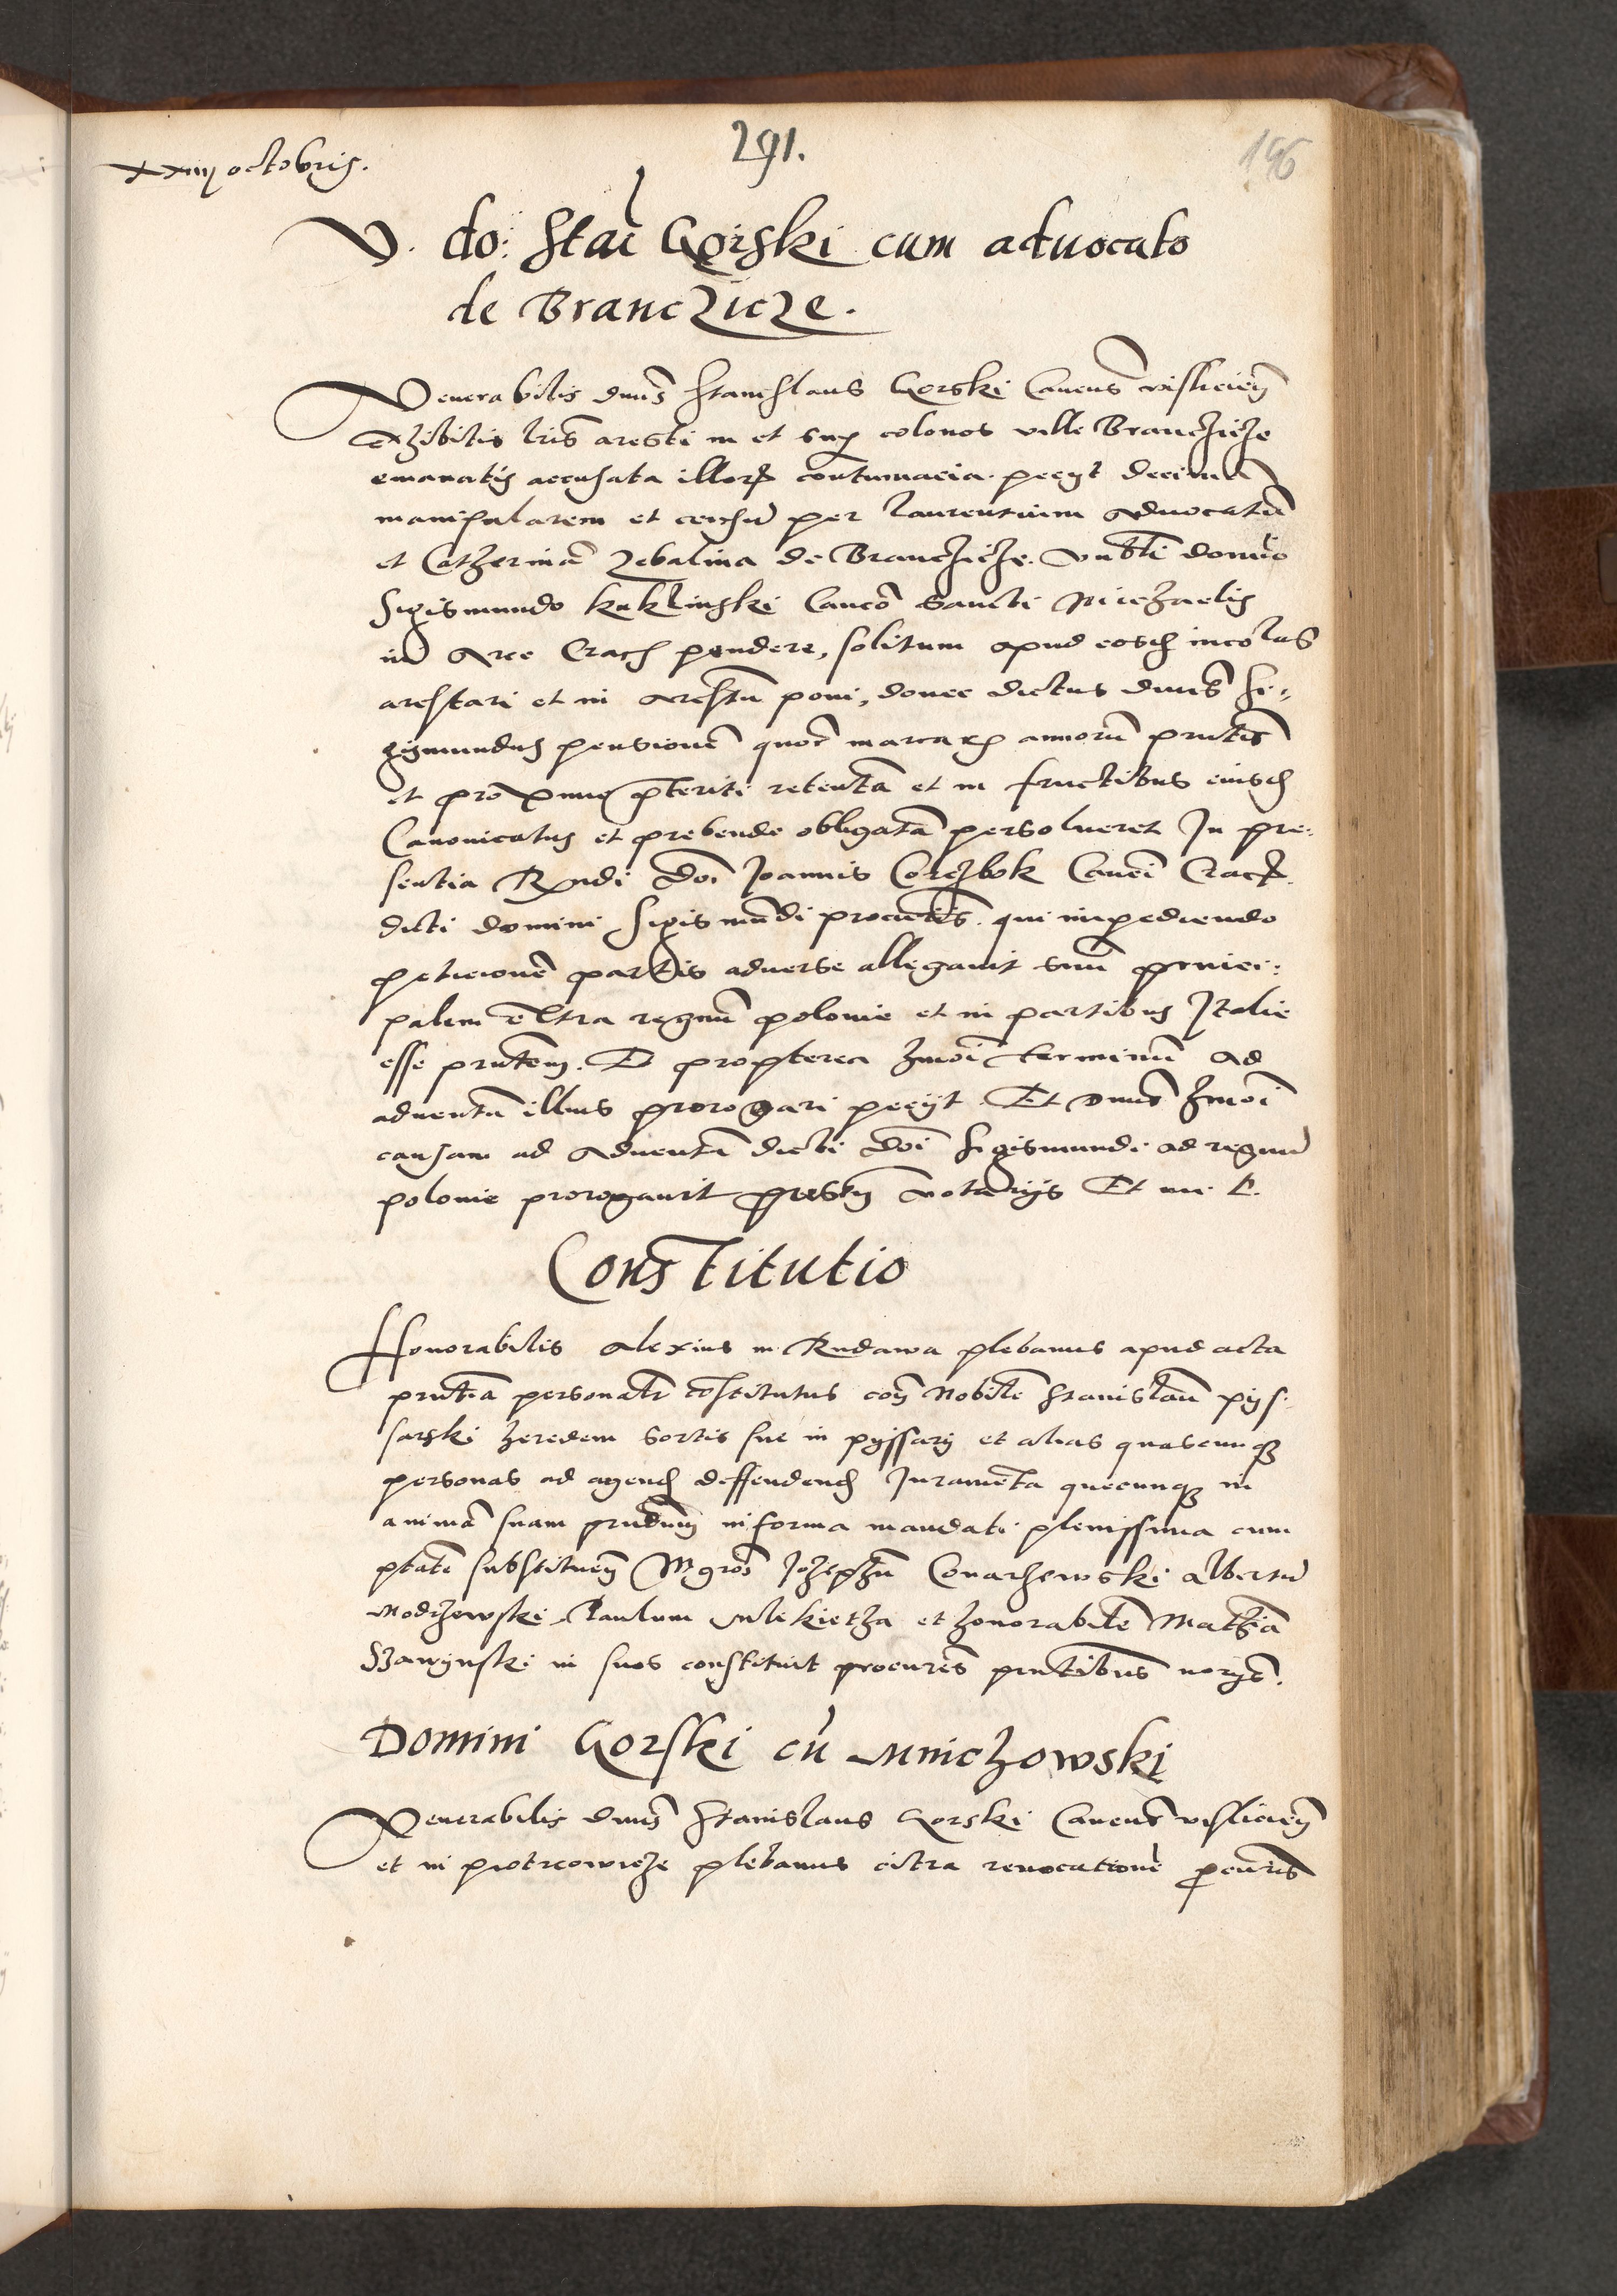 291.
196
xxiiij octobris.
V. do: Stai Gorski cum aduocato
de Branczicze.
Venerabilis dnus Stanislaus Gorski Cancus visliciens
exhibitis lris aresti in et sup colonos ville Branczicze
emanatis accusata illorum contumacia. pecyt decimam
manipularem et censum per laurentium aduocatum
et Catherinam Zebalina de Branczicze. domino
Sigismundo kuklinski Canco sancti Michaelis
in arce Crac pendere, solitum apud eosd incolas
arestari et in arestum poni, donec dictus dnus Si-
gismundus pensionem quor marcarum annorum pntis
et proxime pteriti retentam et in fructibus eiusd
Canonicatus et prebende obligatam persolueret In pre-
sentia Rndi doi Joannis Corczbok Canci Crac
dicti domini Sigismundi procuris. qui impediendo
peticionem partis aduerse allegauit suum princi-
palem extra regnum polonie et in partibus Italie
esse pntem. Et propterea hmoi terminum ad
aduentum illius prorogari pecijt. Et dnus hmoi
causam ad aduentum dicti doi Sigismundi ad regnum
polonie prorogauit presen notarijs Et
Constitutio
Honorabilis Alexius in Rudawa plebanus apud acta
pntia personalr costitutus com Nobilem Stanislaum pijs-
sarski heredem sortis sue in pyssary et alias quascunq
personas ad agend deffendend Juramenta quecunq in
animam suam prestandum in forma mandati plenissima cum
ptate substituen Mgros Josephum Conarzewski Albertum
Modrzewski Paulum Mlekietha et honorabilem Mathiam
Szawynski in suos constituit procures pntibus norijs.
Domini Gorski cu Mnichowski
Venerabilis dnus Stanislaus Gorski Cancus visliciens
et in piotrcowicze plebanus citra reuocationem pcuris